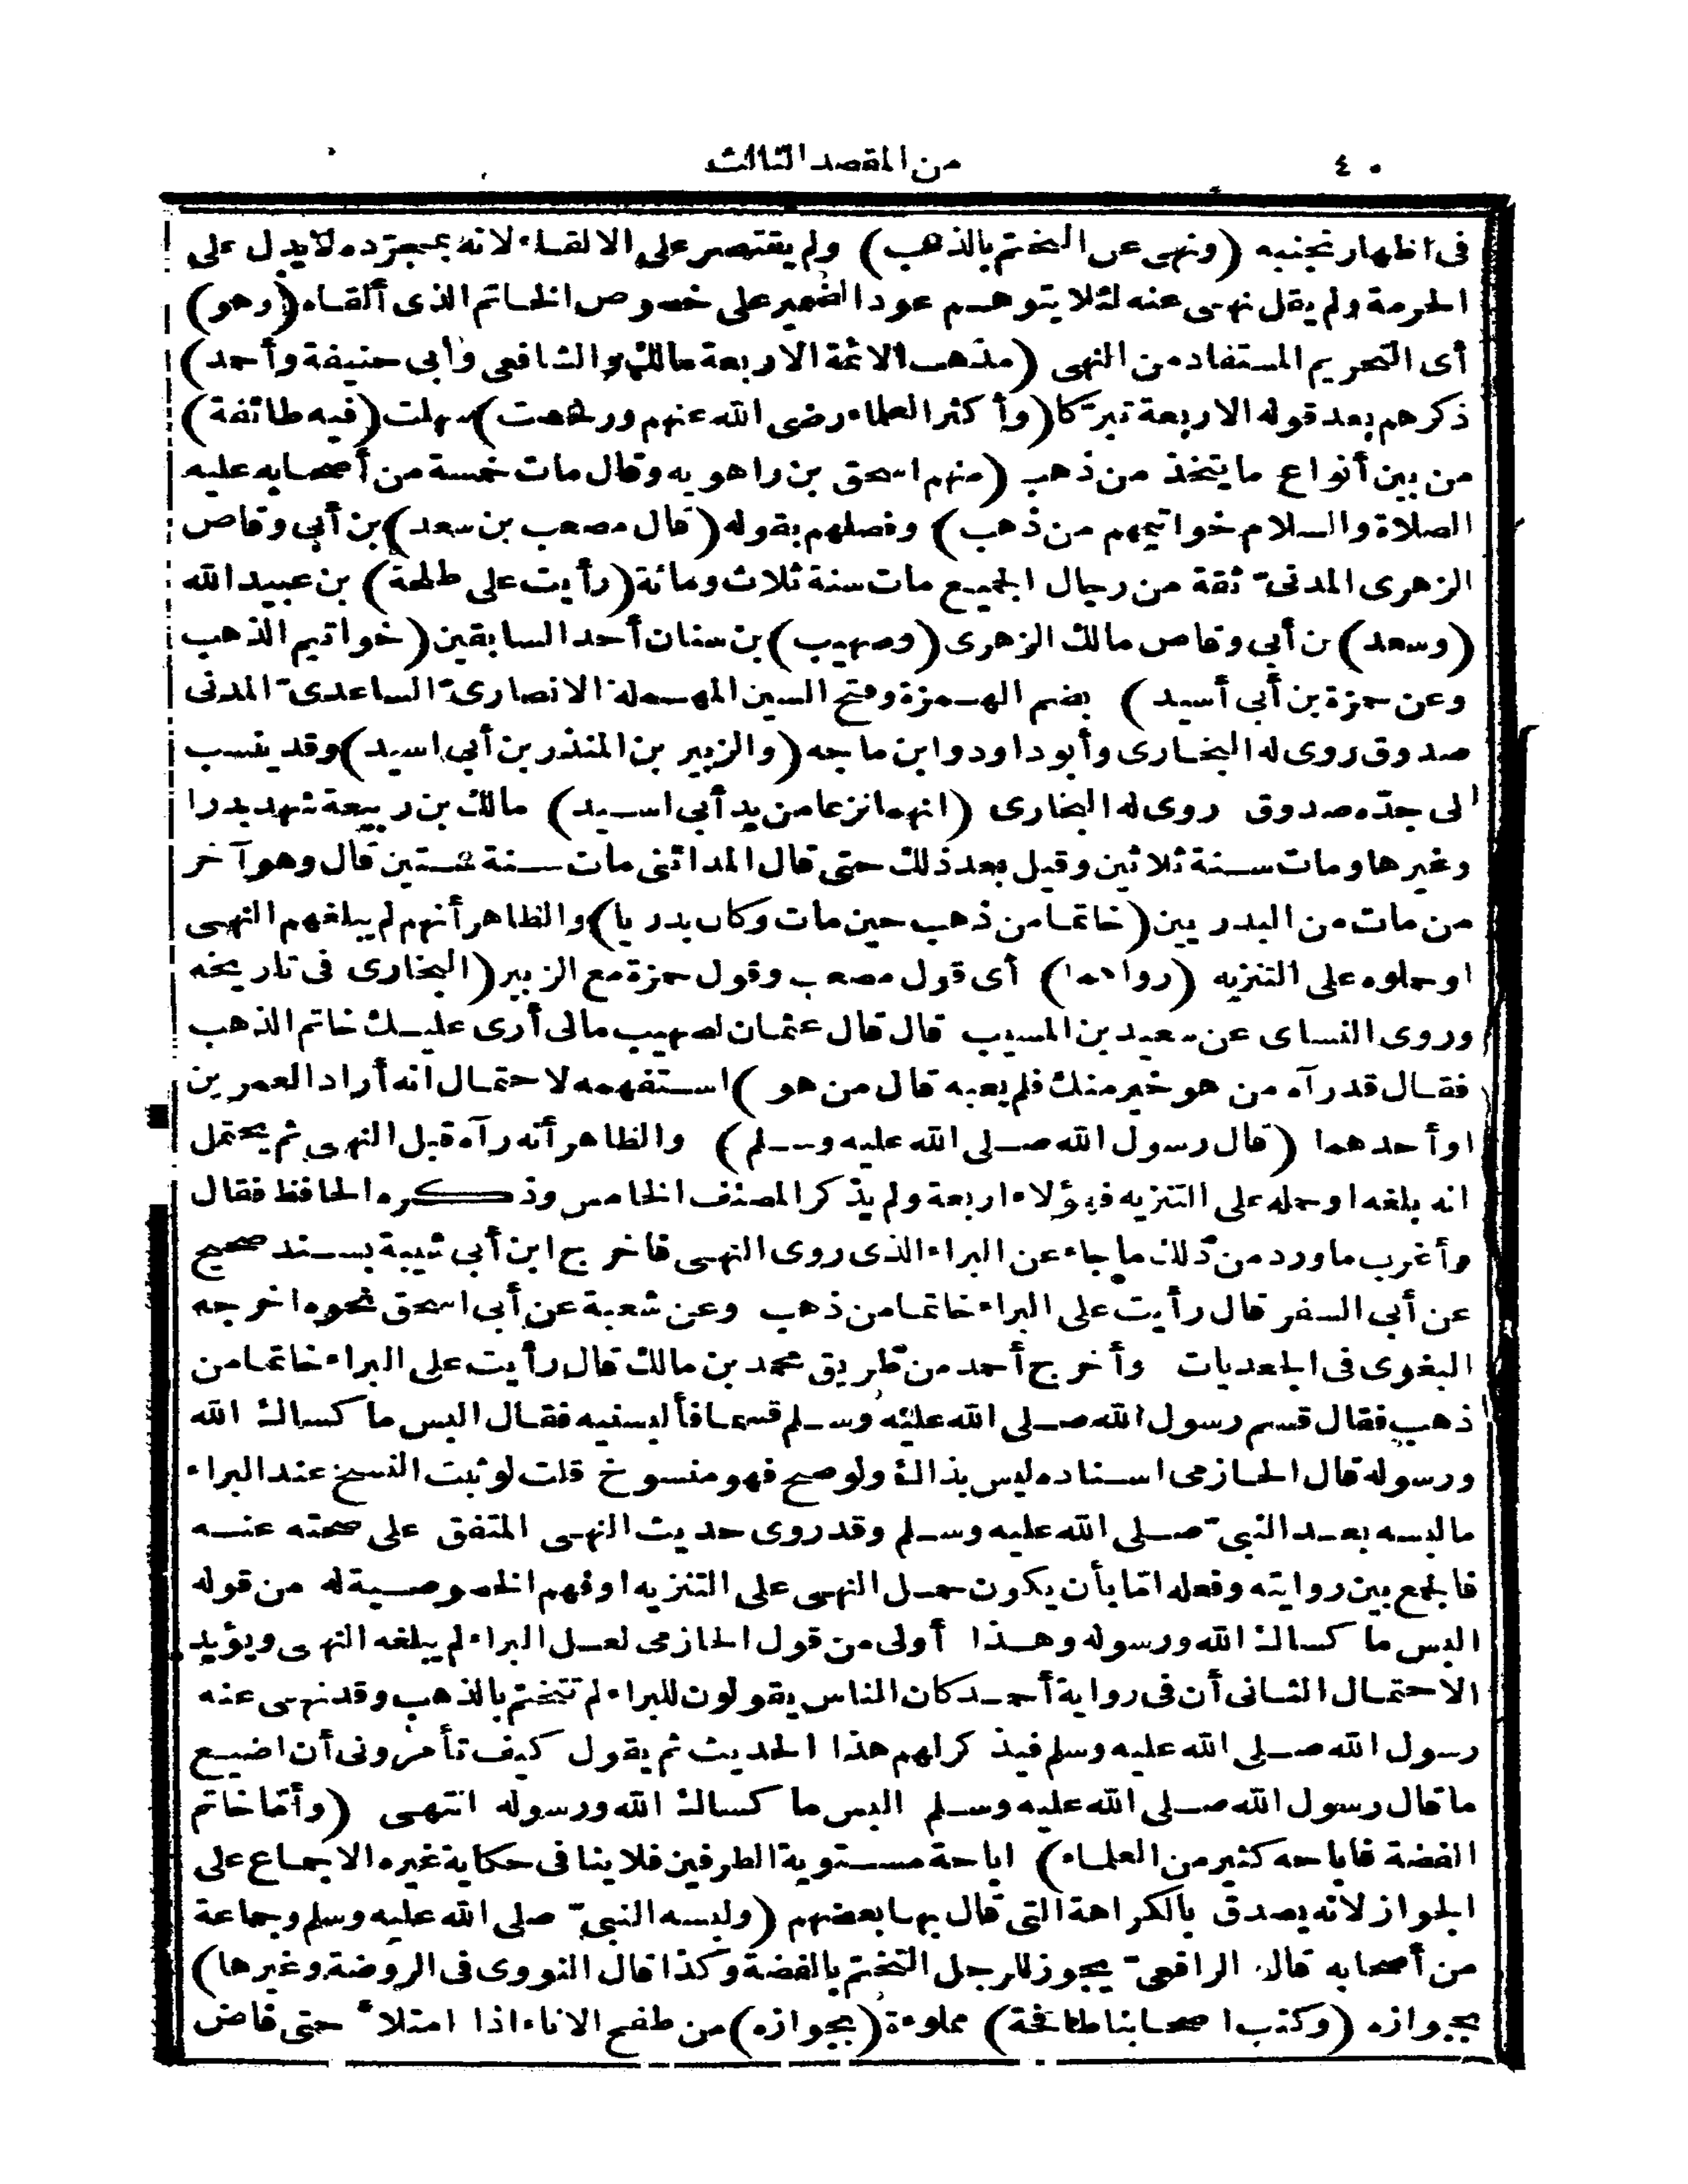 ٤٠ من المقصد الثالث
فى اظهار تجنبه (ونهى عن التختم بالذهب) ولم يقتصر على الالقاء لانه بمجرّده لا يدل على
الحرمة ولم يقل نهى عنه لئلا يتوهم عود الضمير على خصوص الخاتم الذى ألقاه (وهو)
أى التحريم المستفاد من النهى (مذهب الائمة الاربعة مالك والشافعى وأبى حنيفة وأحمد)
ذكرهم بعد قوله الاربعة تبرّكا (وأكثر العلماء رضى الله عنهم ورخصت) سهلت (فيه طائفة)
من بين أنواع ما يتخذ من ذهب (منهم اسحق بن راهويه وقال مات خمسة من أصحابه عليه
الصلاة والسلام خواتيمهم من ذهب) وفصلهم بقوله (قال مصعب بن سعد) بن أبى وقاص
الزهرى المدنىّ ثقة من رجال الجميع مات سنة ثلاث ومائة (رأيت على طلحة) بن عبيد الله
(وسعد) بن أبى وقاص مالك الزهرى (وصهيب) بن سنان أحد السابقين (خواتيم الذهب
وعن حمزة بن أبى أسيد) بضم الهمزة وفتح السين المهملة الانصارىّ الساعدىّ المدنى
صدوق روى له البخارى وأبو داود وابن ماجه (والزبير بن المنذر بن أبى اسيد) وقد ينسب
الى جدّه صدوق روى له البخارى (انهما نزعا من يد أبى اسيد) مالك بن ربيعة شهد بدرا
وغيرها ومات سنة ثلاثين وقيل بعد ذلك حتى قال المدائنى مات سنة ستين قال وهو آخر
من مات من البدريين (خاتما من ذهب حين مات وكان بدريا) والظاهر أنهم لم يبلغهم النهى
او حملوه على التنزيه (رواهما) أى قول مصعب وقول حمزة مع الزبير (البخارى فى تاريخه
وروى النساى عن سعيد بن المسيب قال قال عثمان لصهيب مالى أرى عليك خاتم الذهب
فقال قد رآه من هو خير منك فلم يعبه قال من هو) استفهمه لاحتمال انه أراد العمرين
او أحدهما (قال رسول الله صلى الله عليه وسلم) والظاهر أنه رآه قبل النهى ثم يحتمل
انه بلغه او حمله على التنزيه فهؤلاء اربعة ولم يذكر المصنف الخامس وذكره الحافظ فقال
وأغرب ما ورد من ذلك ما جاء عن البراء الذى روى النهى فاخرج ابن أبى شيبة بسند صحيح
عن أبى السفر قال رأيت على البراء خاتما من ذهب وعن شعبة عن أبى اسحق نحوه اخرجه
البغوى فى الجعديات وأخرج أحمد من طريق محمد بن مالك قال رأيت على البراء خاتما من
ذهب فقال قسم رسول الله صلى الله عليه وسلم قسما فألبسنيه فقال البس ما كساك الله
ورسوله قال الحازمى اسناده ليس بذاك ولو صح فهو منسوخ قلت لو ثبت النسخ عند البراء
ما لبسه بعد النبىّ صلى الله عليه وسلم وقد روى حديث النهى المتفق على صحته عنه
فالجمع بين روايته وفعله امّا بأن يكون حمل النهى على التنزيه او فهم الخصوصية له من قوله
البس ما كساك الله ورسوله وهذا أولى من قول الحازمى لعل البراء لم يبلغه النهى ويؤيد
الاحتمال الثانى أن فى رواية أحمد كان الناس يقولون للبراء لم تتختم بالذهب وقد نهى عنه
رسول الله صلى الله عليه وسلم فيذكر لهم هذا الحديث ثم يقول كيف تأمرونى أن اضيع
ما قال رسول الله صلى الله عليه وسلم البس ما كساك الله ورسوله انتهى (وأمّا خاتم
الفضة فاباحه كثير من العلماء) اباحة مستوية الطرفين فلا ينافى حكاية غيره الاجماع على
الجواز لانه يصدق بالكراهة التى قال بها بعضهم (ولبسه النبىّ صلى الله عليه وسلم وجماعة
من أصحابه قال الرافعىّ يجوز للرجل التختم بالفضة وكذا قال النووى فى الروضة وغيرها)
بجوازه (وكتب اصحابنا طافحة) مملوءة (بجوازه) من طفح الاناء اذا امتلأ حتى فاض